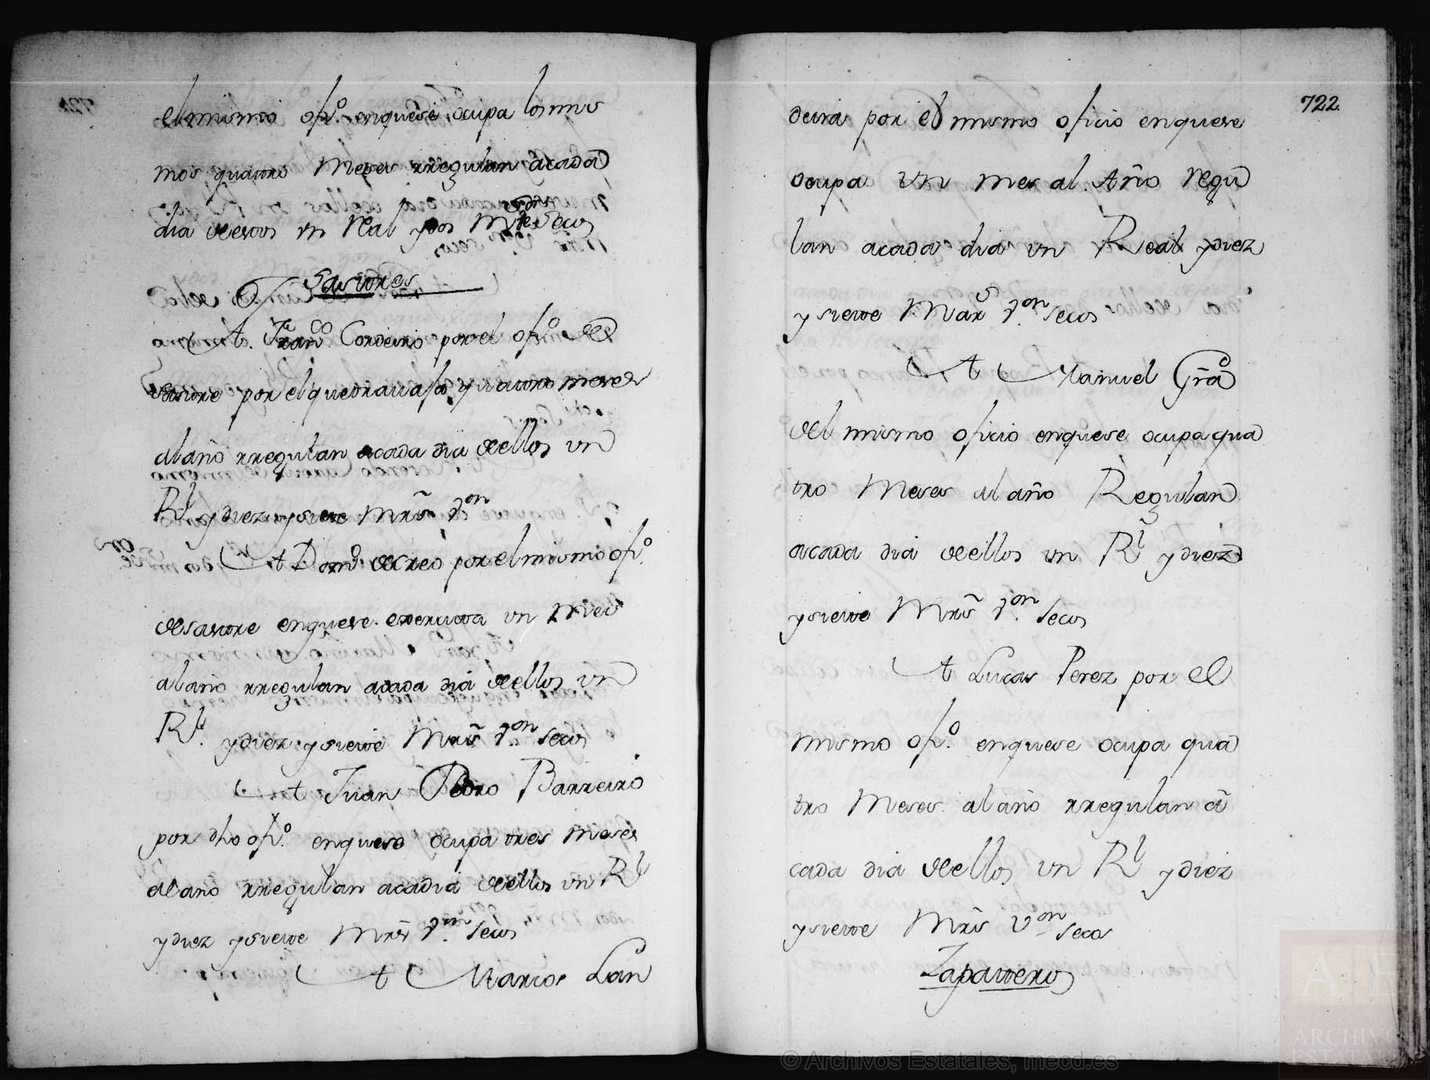 el mismo ofi.º enquese ocupa los mis
mos quatro Meses rregulan acada
dia deestos un Real y dos Mrs von Secos
Sastres
A Franco Cordeiro por el ofi.º de
sastre por el que travaja quatro meses
al año rregulan acada dia dellos un
Rl y diez y siete Mrs Von
A Domo de creo por el mismo ofi.º
desastre enquese exercita un Mes
al año rregulan acada dia dellos un
Rl. y diez y siete Mrs Von secos
A Juan Pedro Barreiro
por dho ofi.º enquese ocupa tres meses
al año rregulan acadia dellos un Rl
y diez y siete Mrs Von secos
A Marcos Lan
722
deira por el mismo oficio enquese
ocupa un mes al Año regu
lan acada dia un Real y diez
y siete Mars Von secos
A Manuel Gra
del mismo oficio enquese ocupa qua
tro Meses al año Regulan
acada dia dellos un Rl y diez
y siete Mrs Von secos
A Lucas Perez por el
mismo ofi.º enquese ocupa qua
tro Meses al año rregulan a
cada dia dellos un Rl y diez
y siete Mrs Von secos
Zapateros
© Archivos Estatales, mecd.es
ARCHIVOS
ESTATALES